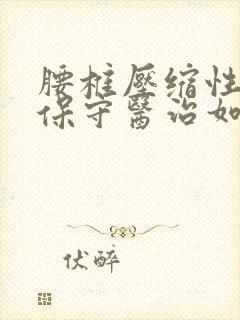 腰椎壓缩性
保守醫治如
伏醉